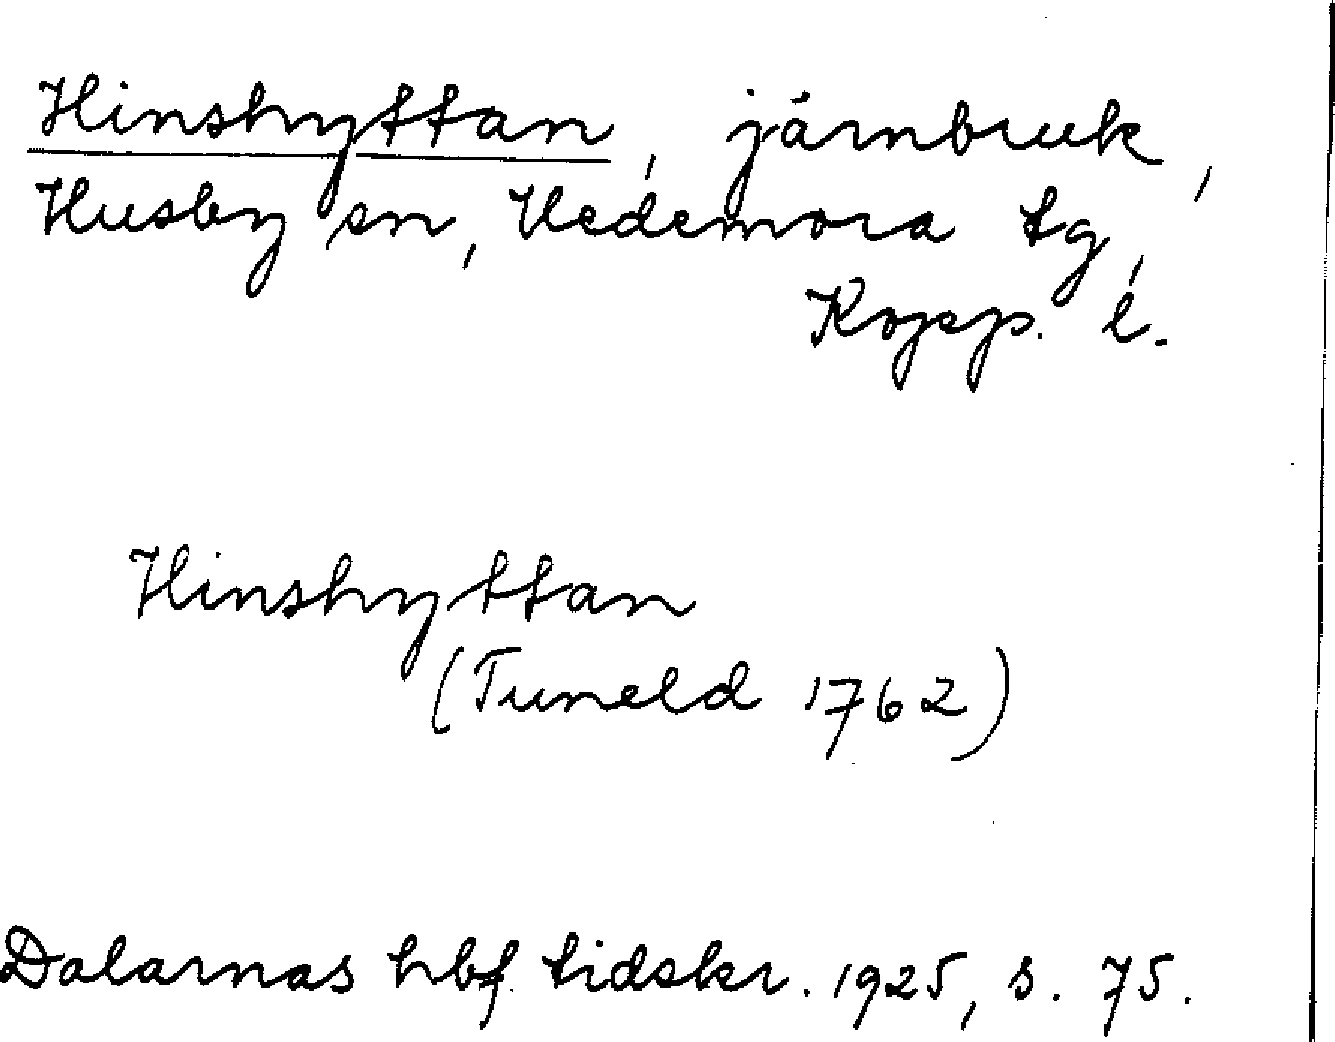 Hinshyttan, järnbruk,
Husby sn, Hedemora tg,
Kopp. l.
Hinshyttan
(Tuneld 1762)
Dalarnas hbf. tidskr. 1925, s. 75.